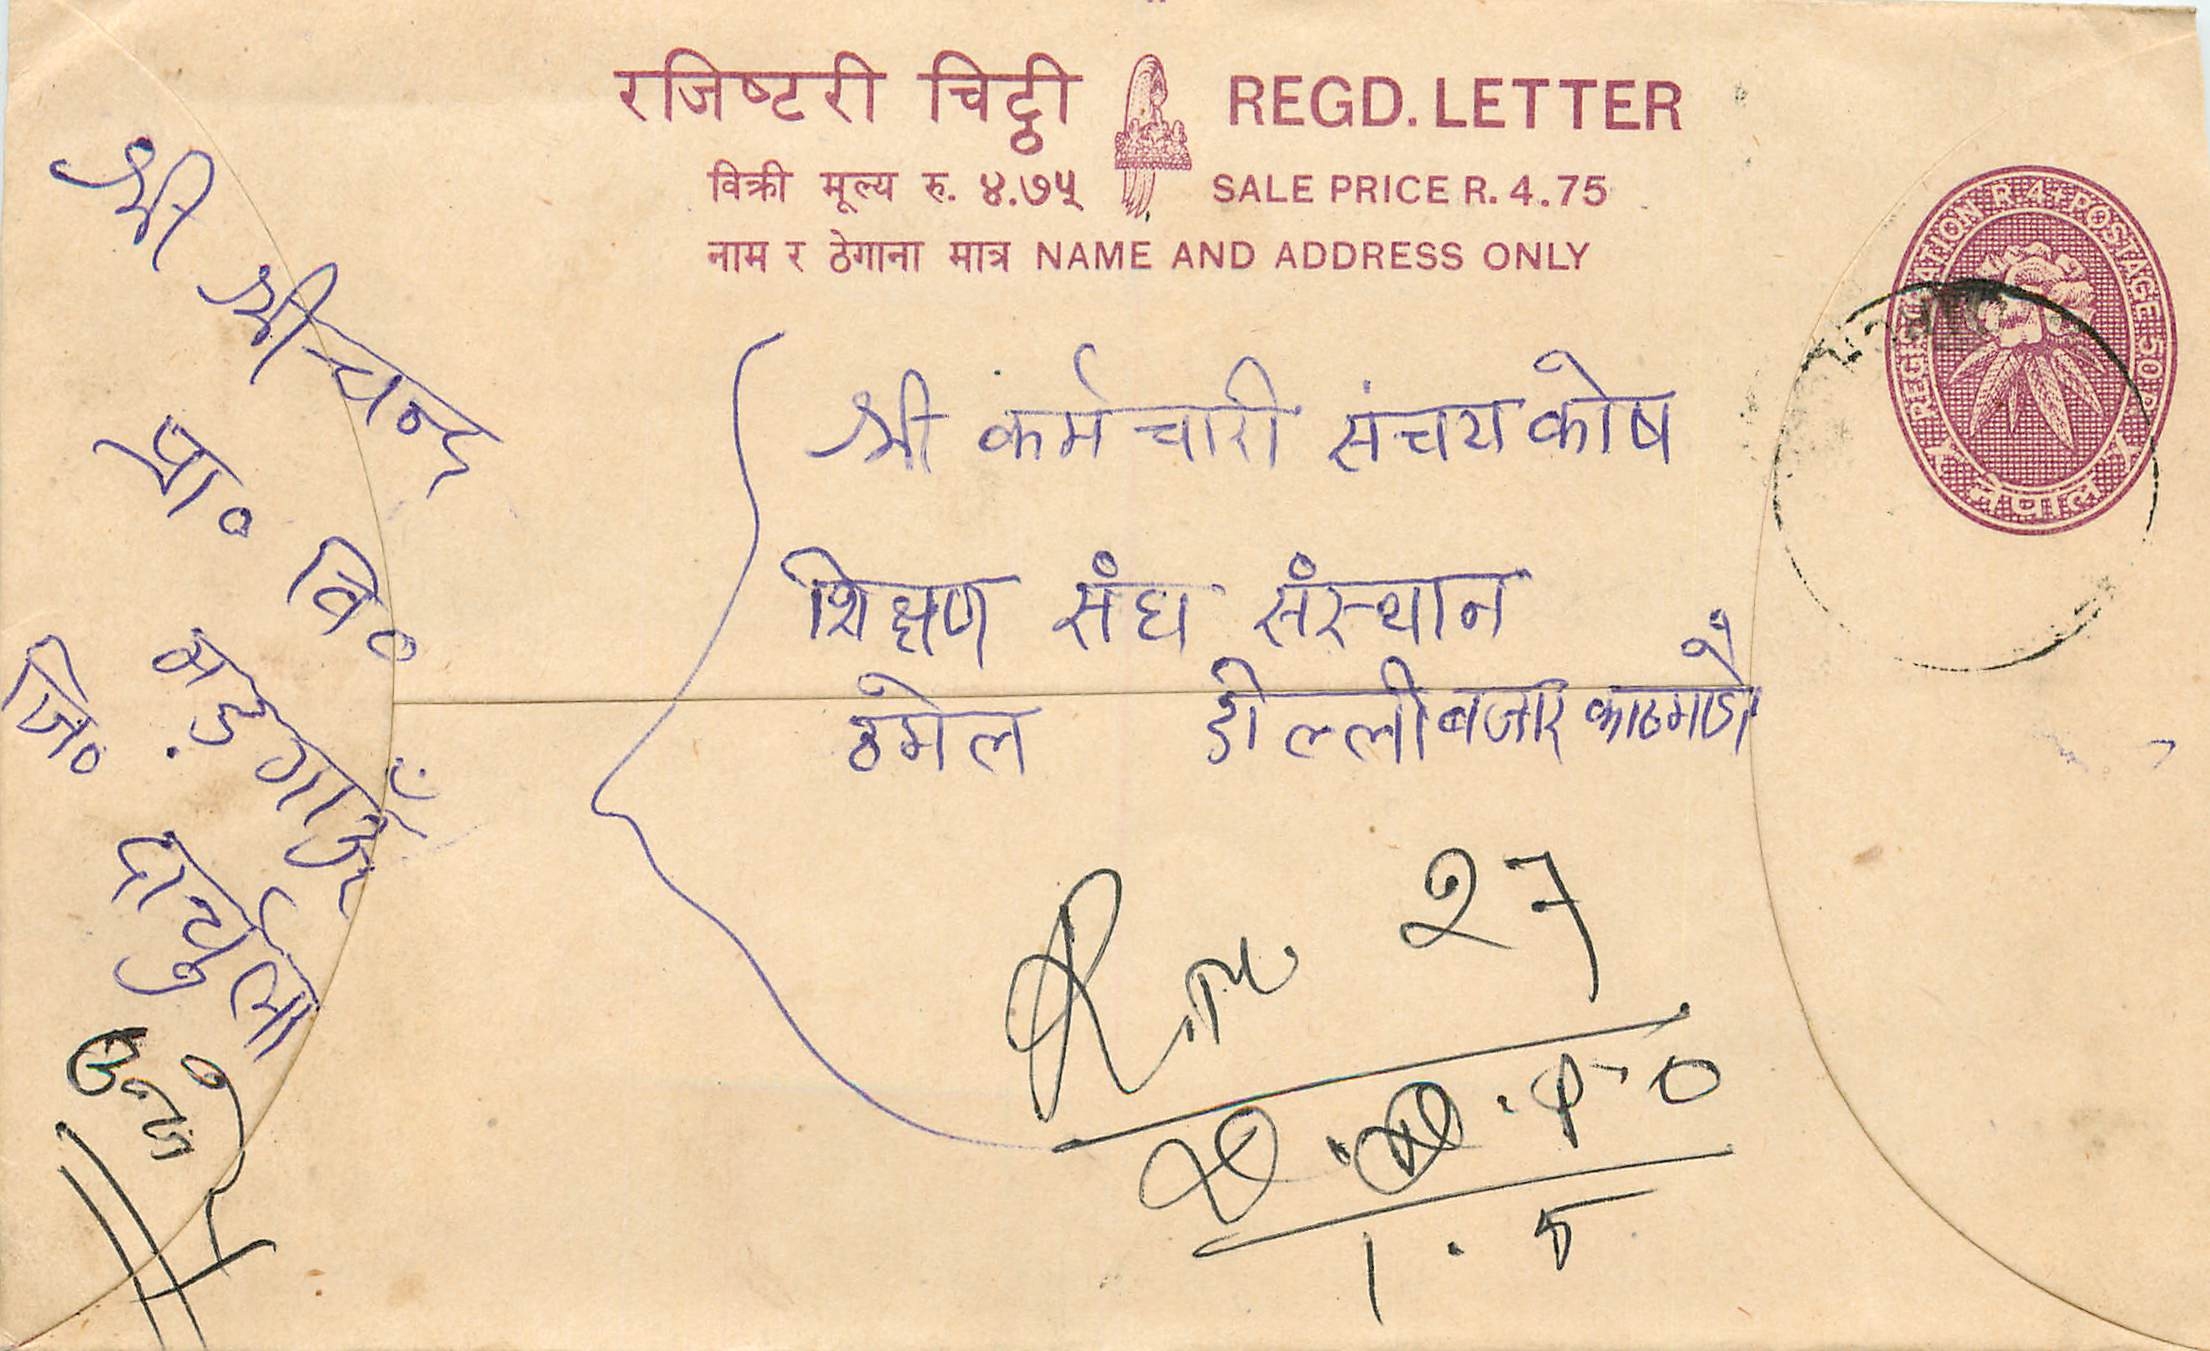 रजिष्टरी चिट्ठी REGD. LETTER
विक्री मूल्य रु. ४.७५ SALE PRICE R. 4.75
नाम र ठेगाना मात्र NAME AND ADDRESS ONLY
REGISTRATION R. 4 + POSTAGE 50 P.
नेपाल
श्री कर्मचारी संचयकोष
शिक्षण संघ संस्थान
ठमेल डील्लीबजार काठमाडौं
श्री श्रीचन्द्र
प्रा० वि०
भड्गाउँ
जि० दार्चुला